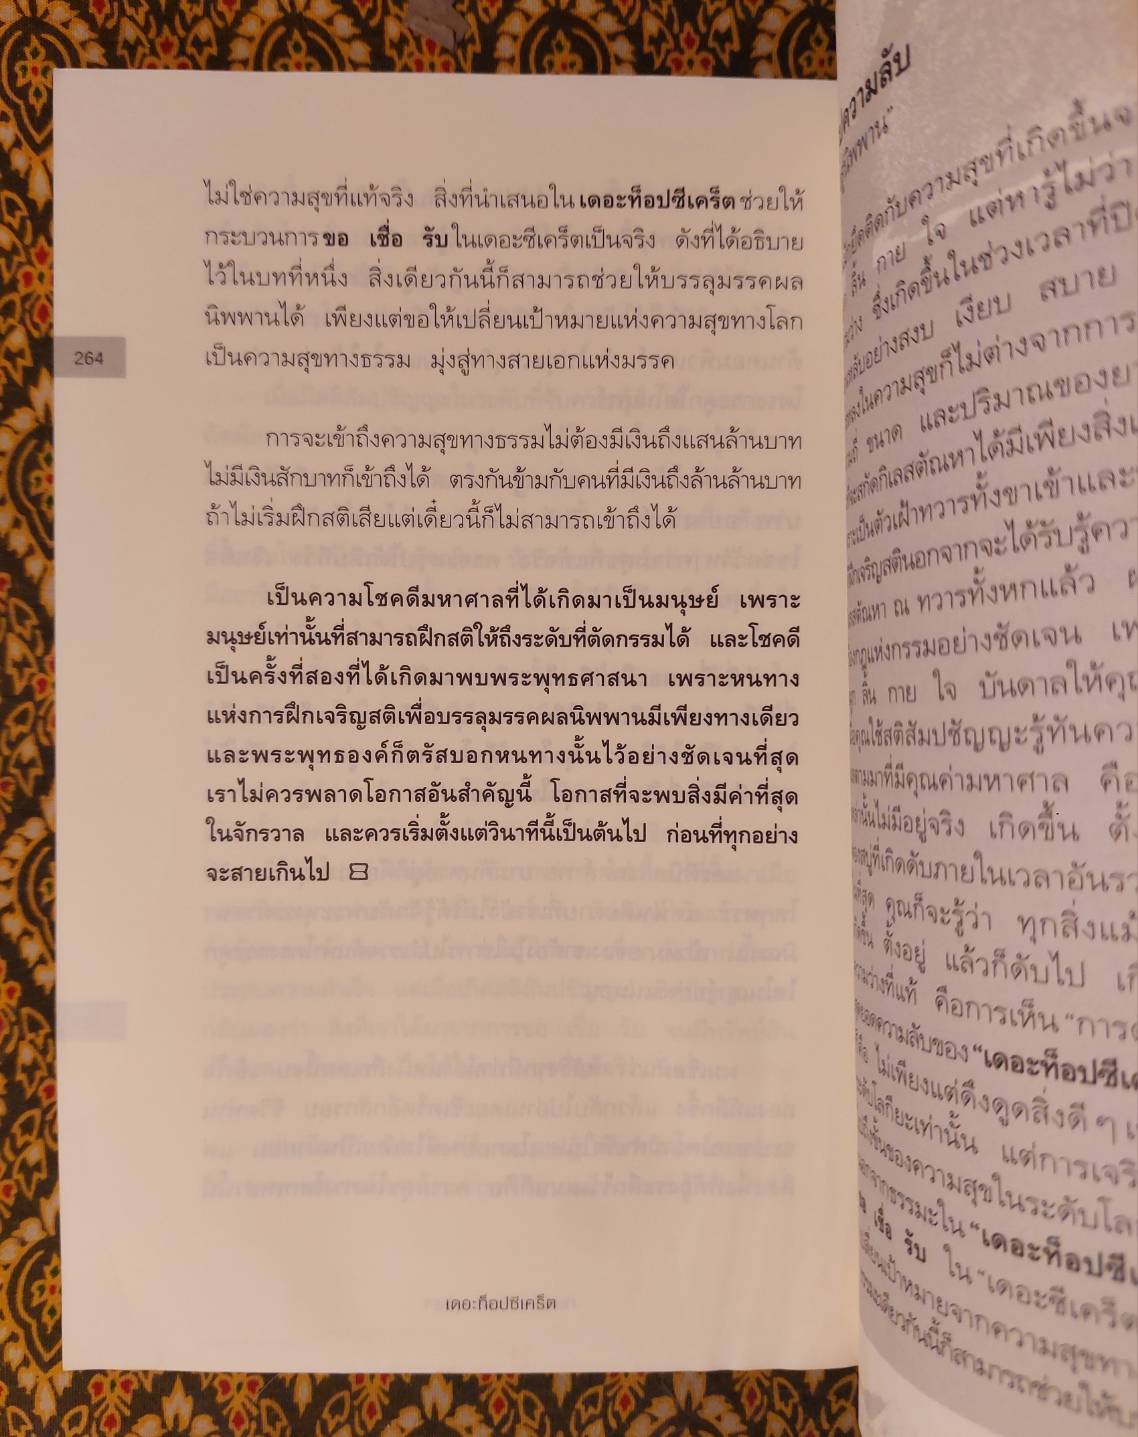 ไม่ใช่ความสุขที่แท้จริง สิ่งที่นำเสนอใน เดอะท็อปซีเคร็ต ช่วยให้
กระบวนการ ขอ เชื่อ รับ ในเดอะซีเคร็ตเป็นจริง ดังที่ได้อธิบาย
ไว้ในบทที่หนึ่ง สิ่งเดียวกันนี้ก็สามารถช่วยให้บรรลุมรรคผล
นิพพานได้ เพียงแต่ขอให้เปลี่ยนเป้าหมายแห่งความสุขทางโลก
264
เป็นความสุขทางธรรม มุ่งสู่ทางสายเอกแห่งมรรค
การจะเข้าถึงความสุขทางธรรมไม่ต้องมีเงินถึงแสนล้านบาท
ไม่มีเงินสักบาทก็เข้าถึงได้ ตรงกันข้ามกับคนที่มีเงินถึงล้านล้านบาท
ถ้าไม่เริ่มฝึกสติเสียแต่เดี๋ยวนี้ก็ไม่สามารถเข้าถึงได้
เป็นความโชคดีมหาศาลที่ได้เกิดมาเป็นมนุษย์ เพราะ
มนุษย์เท่านั้นที่สามารถฝึกสติให้ถึงระดับที่ตัดกรรมได้ และโชคดี
เป็นครั้งที่สองที่ได้เกิดมาพบพระพุทธศาสนา เพราะหนทาง
แห่งการฝึกเจริญสติเพื่อบรรลุมรรคผลนิพพานมีเพียงทางเดียว
และพระพุทธองค์ก็ตรัสบอกหนทางนั้นไว้อย่างชัดเจนที่สุด
เราไม่ควรพลาดโอกาสอันสำคัญนี้ โอกาสที่จะพบสิ่งมีค่าที่สุด
ในจักรวาล และควรเริ่มตั้งแต่วินาทีนี้เป็นต้นไป ก่อนที่ทุกอย่าง
จะสายเกินไป
เดอะท็อปซีเคร็ต
ความลับ
ยึดติดกับความสุขที่เกิดขึ้น
ลิ้น กาย ใจ แต่หารู้ไม่ว่า
ซึ่งเกิดขึ้นในช่วงเวลาที่
อย่างสงบ เงียบ สบาย
ในความสุขก็ไม่ต่างจากการ
ขนาด และปริมาณของ
สกัดกิเลสตัณหาได้มีเพียงสิ่ง
เป็นตัวเฝ้าทวารทั้งขาเข้าและ
เจริญสตินอกจากจะได้รับรู้
ตัณหา ณ ทวารทั้งหกแล้ว
แห่งกรรมอย่างชัดเจน
ลิ้น กาย ใจ บันดาลให้
คุณใช้สติสัมปชัญญะรู้ทัน
ตามมาที่มีคุณค่ามหาศาล คือ
นั้นไม่มีอยู่จริง เกิดขึ้น
ที่เกิดดับภายในเวลาอัน
คุณก็จะรู้ว่า ทุกสิ่ง
ตั้งอยู่ แล้วก็ดับไป
ความว่างที่แท้ คือการเห็น
ความลับของ "เดอะท็อปซี
ไม่เพียงแต่ดึงดูดสิ่งดี ๆ
โลกียะเท่านั้น แต่การ
ของความสุขในระดับ
จากธรรมะใน "เดอะท็อปซี
เชื่อ รับ ใน "เดอะซีเคร็ต
เป้าหมายจากความสุข
เดียวกันนี้ก็สามารถช่วยให้